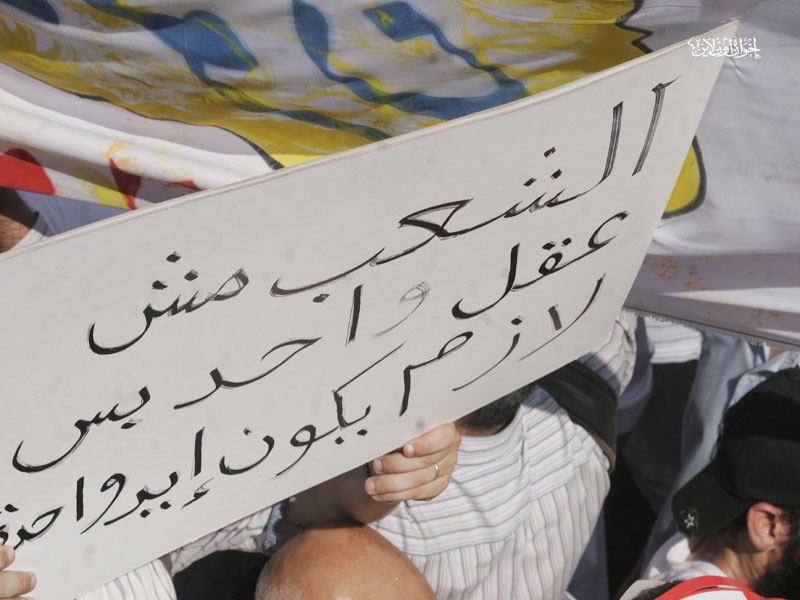 إخوان أون لاين
الشعب مش
عقل واحد بس
لازم يكون إيد واحدة